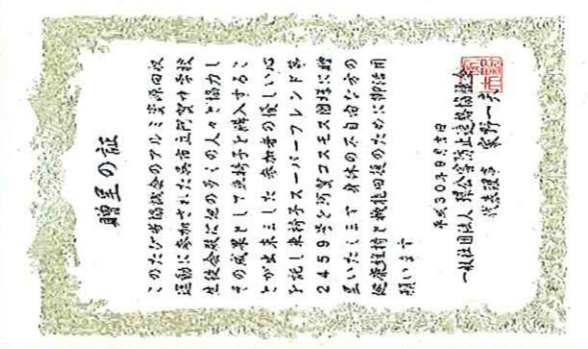 贈呈の証
このたび当協議会のアルミ資源回収
運動に参加された呉市立阿賀中学校
生徒会並に他の多くの人々と協力し
その成果として車椅子を購入するこ
とが出来ました 参加者の優しい心
を託し車椅子スーパーフレンド第
2459号を阿賀コスモス園様に贈
呈いたします 身体の不自由な方の
健康維持と機能回復のために御活用
願います
平成30年9月吉日
一般社団法人 環公害防止連絡協議会
代表理事